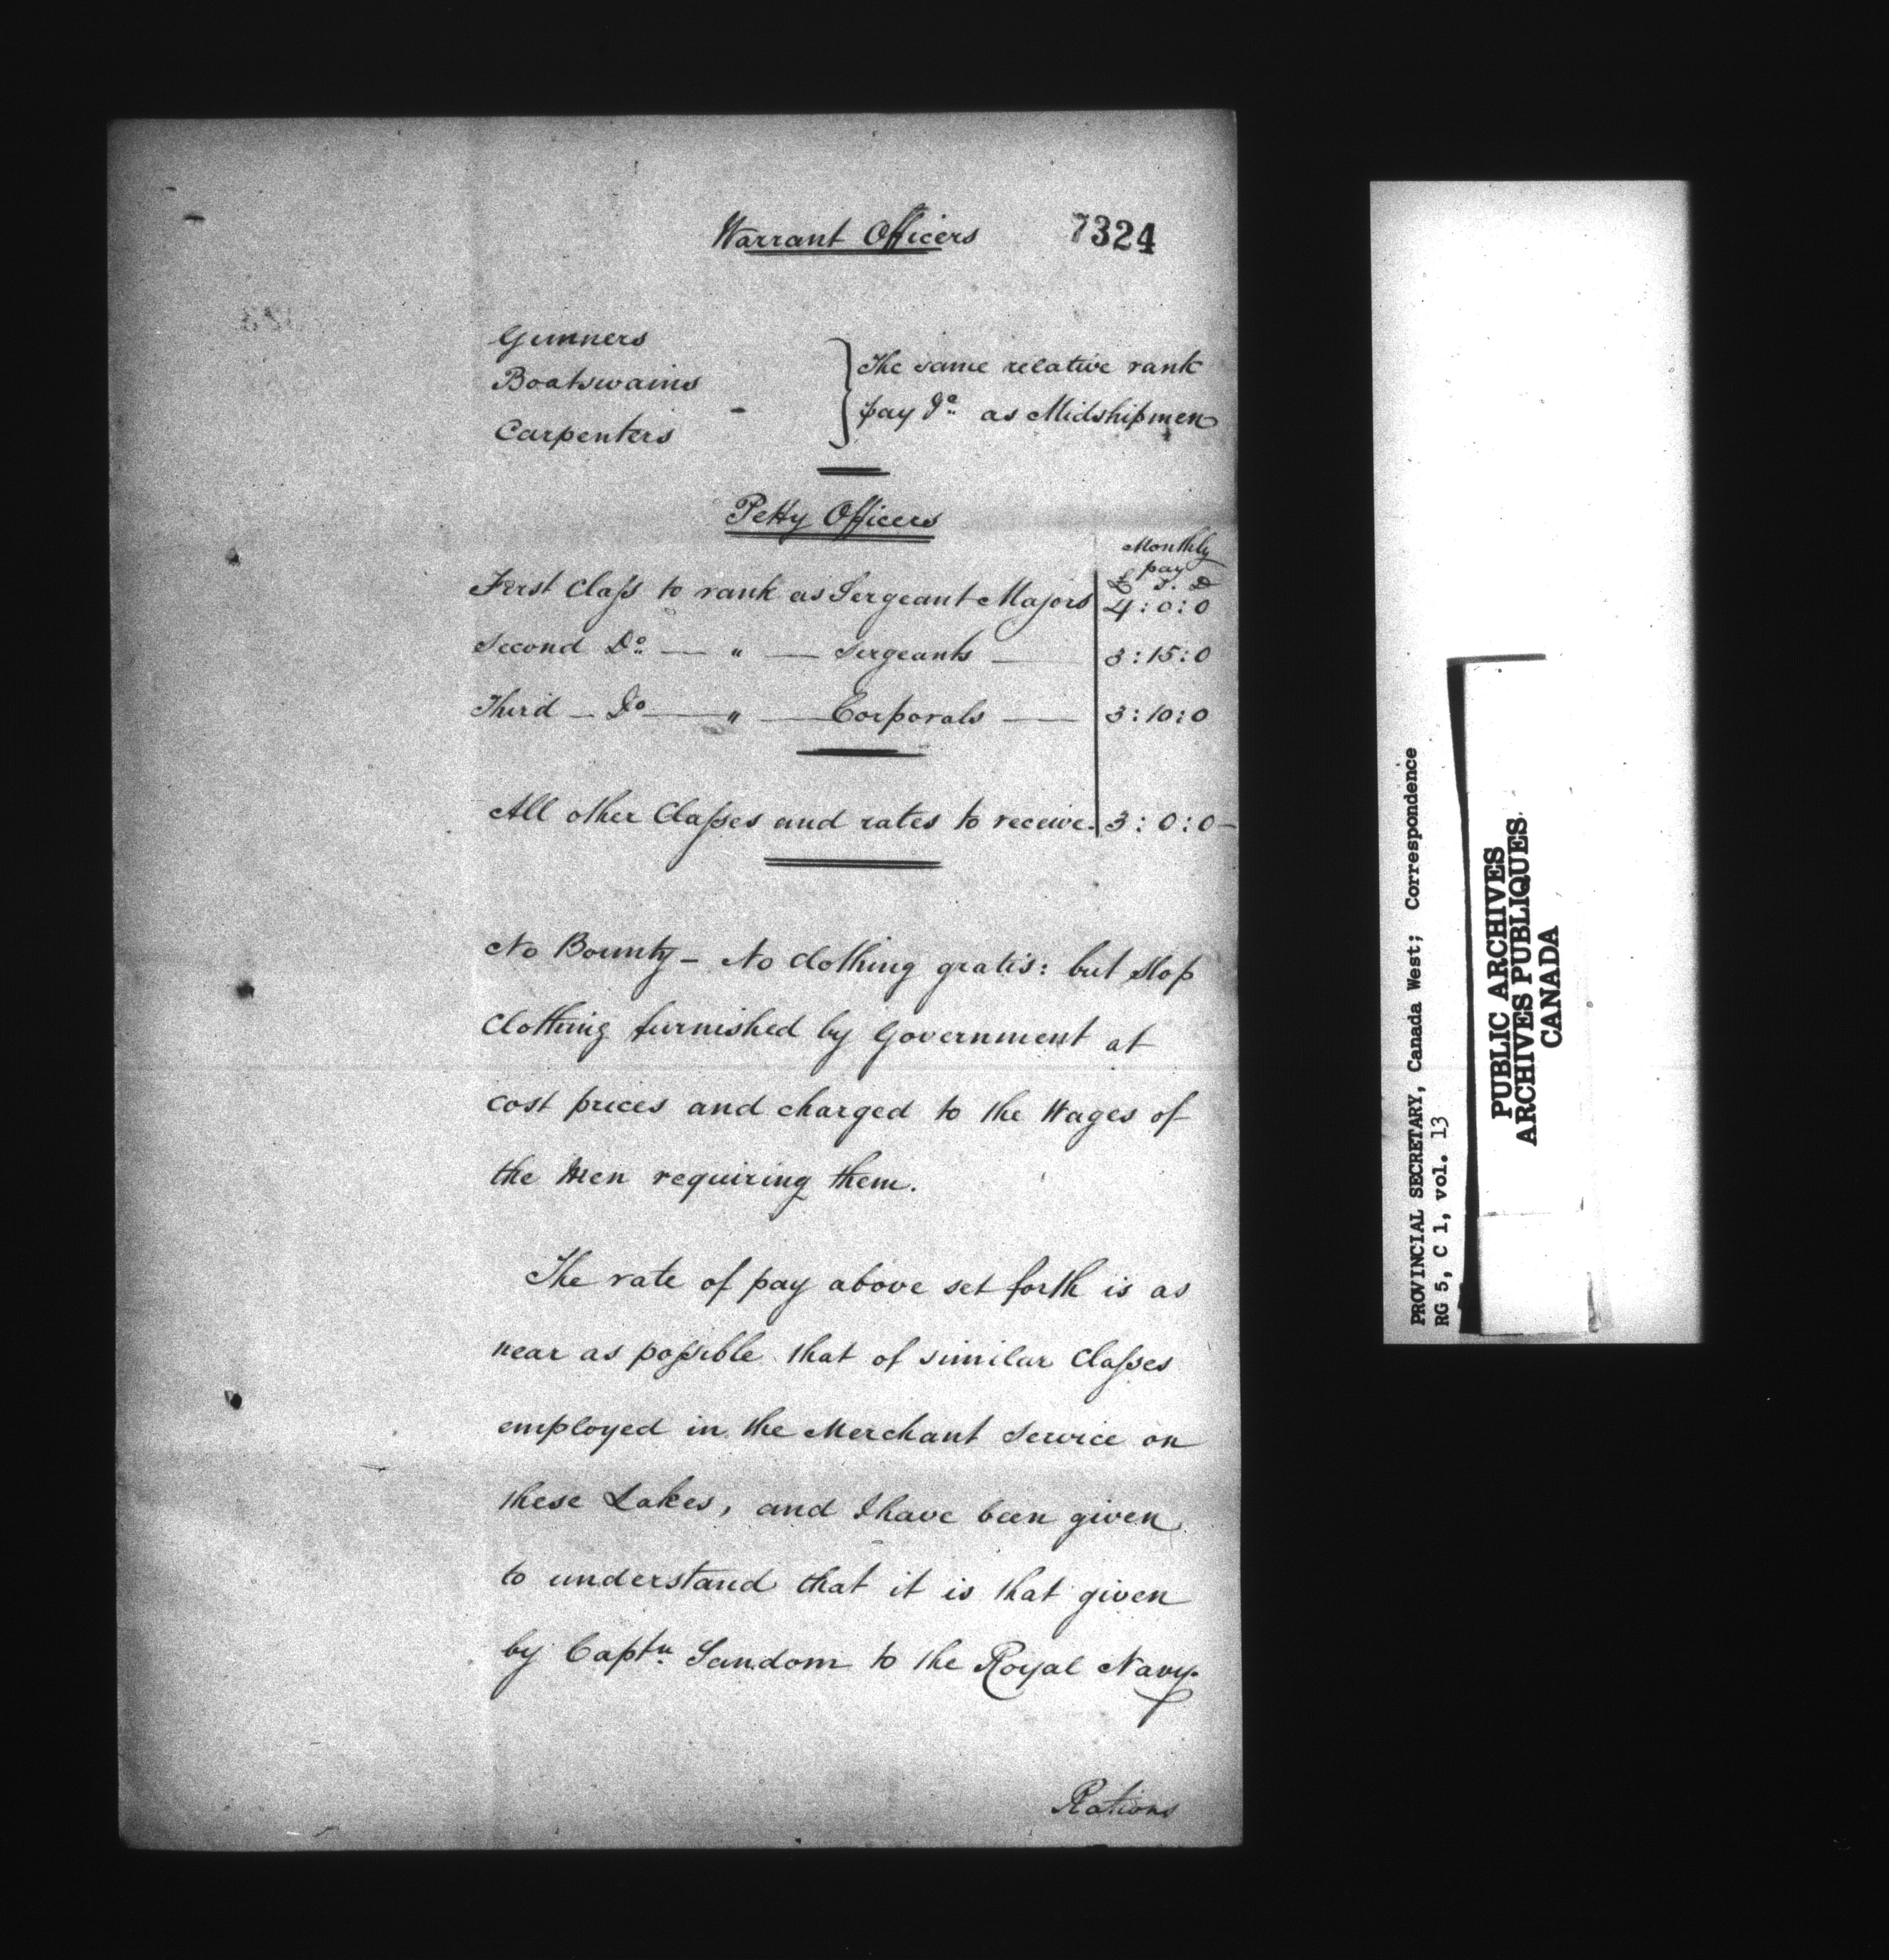 Warrant Officers 7324
Gunners
Boatswains
Carpenters
The same relative rank
pay Do as Midshipmen
Petty Officers
Monthly
pay
£ S. D
First Class to rank as Sergeant Majors 4 : 0 : 0
Second Do — " — Sergeants — 3 : 15 : 0
Third — Do — " — Corporals — 3 : 10 : 0
All other Classes and rates to receive. 3 : 0 : 0 —
No Bounty — No Clothing gratis: but Slop
Clothing furnished by Government at
cost prices and charged to the Wages of
the Men requiring them.
The rate of pay above set forth is as
near as possible that of similar Classes
employed in the Merchant Service on
these Lakes, and I have been given
to understand that it is that given
by Captn Sandom to the Royal Navy.
Rations
PROVINCIAL SECRETARY, Canada West; Correspondence
RG 5, C 1, vol. 13
PUBLIC ARCHIVES
ARCHIVES PUBLIQUES
CANADA